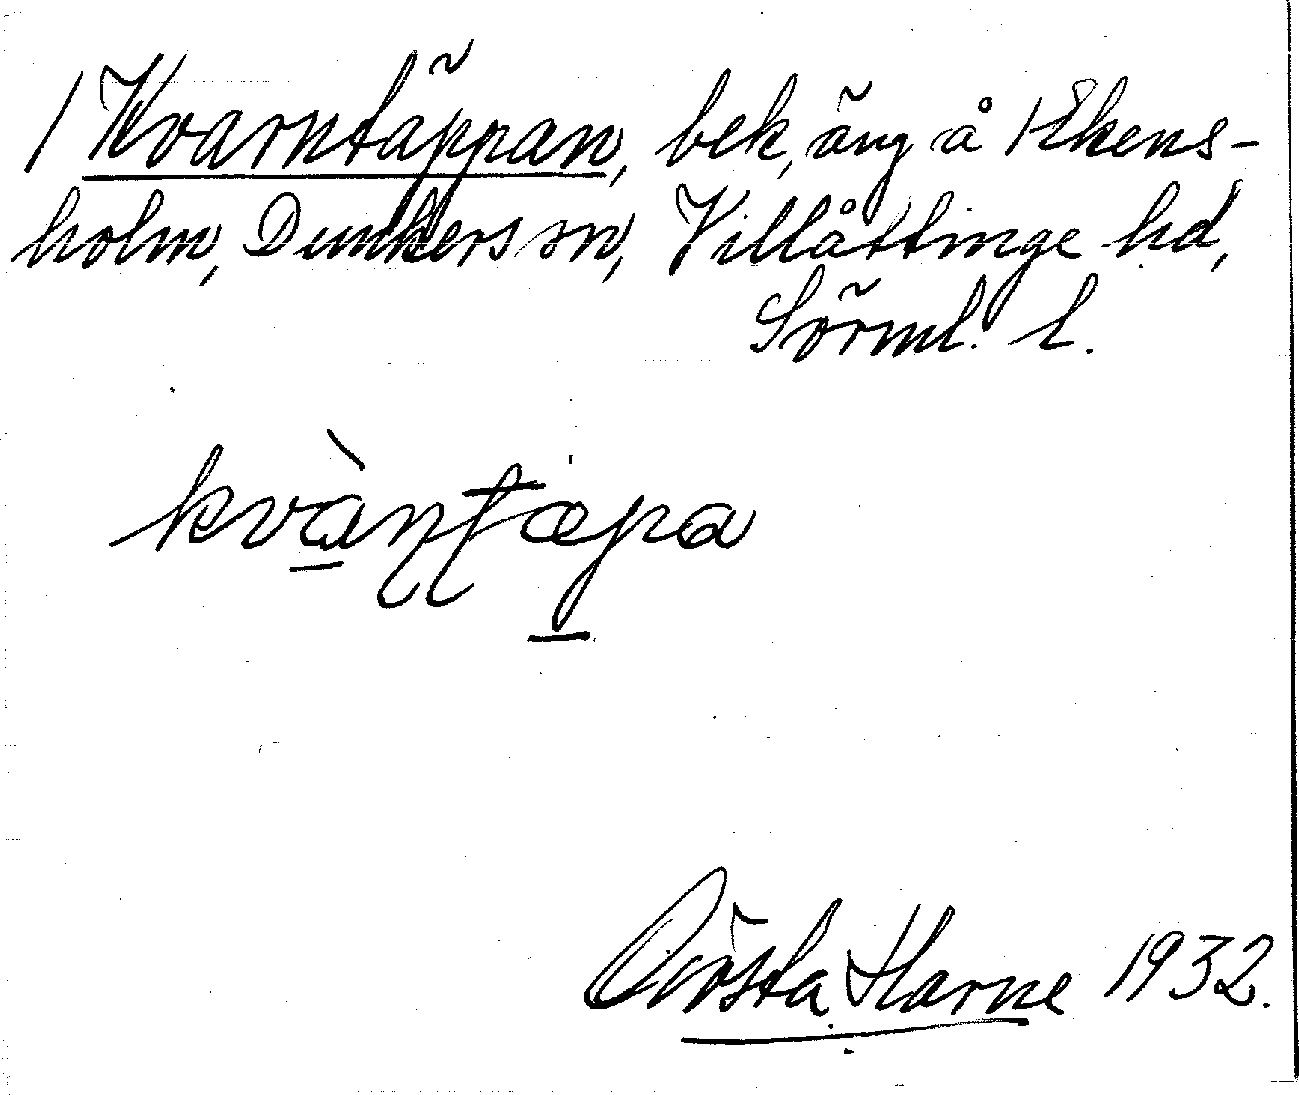 / Kvarntäppan, bek. äng å /Ekens-
holm, Dunkers sn, Villåttinge hd,
Sörml. l.
kvàɳʈæpa
Gösta Harne 1932.